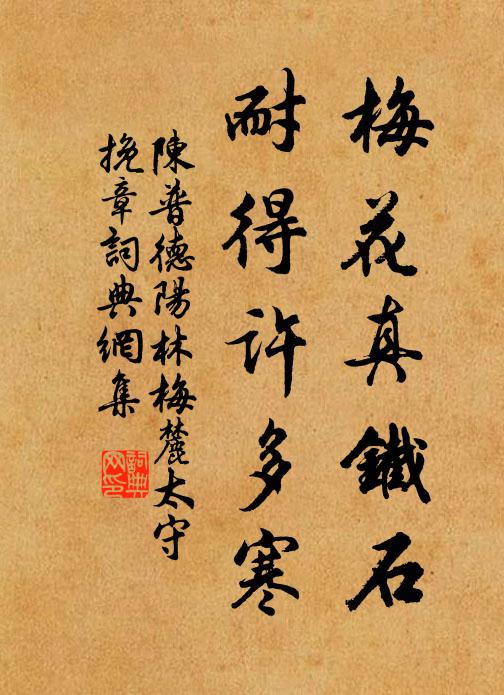 梅花真鐵石
耐得許多寒
陳普德陽林梅麓太守
挽章詞典網集
詞典网印